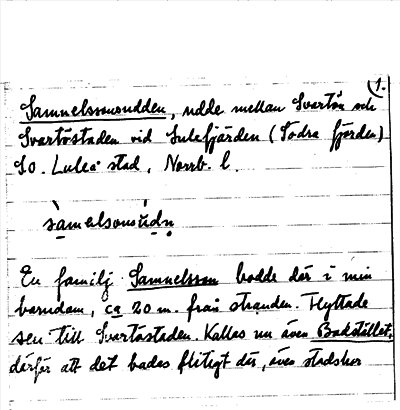 1.
Samuelssonudden, udde mellan Svartön och
Svartöstaden vid Lulefjärden (Södra fjärden)
SO. Luleå stad, Norrb. l.
sàmelsonsúdn̥
En familj Samuelsson bodde där i min
barndom, ca 20 m. från stranden. Flyttade
sen till Svartöstaden. Kallas nu även Badstället,
därför att det badas flitigt där, även stadsbor